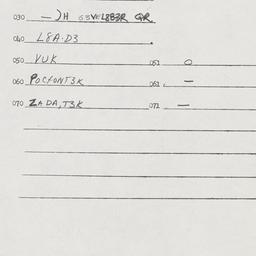 030 —)H 63VEL8B3R QR
040 L8A·D3
050 VUK 051 O
060 POCFONT3K 061 —
070 ZADA,T3K 071 —